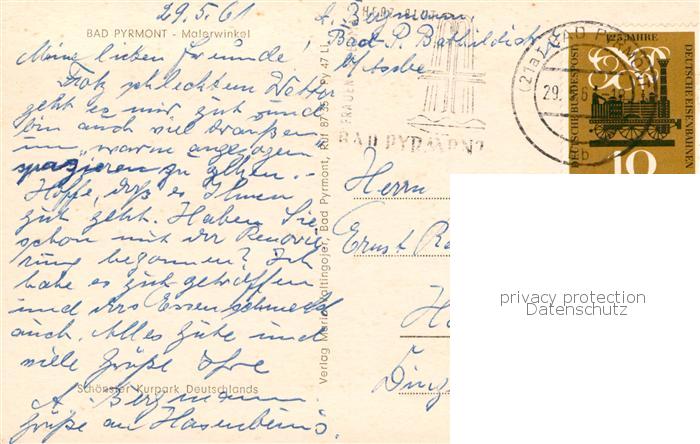 29.5.61
BAD PYRMONT - Malerwinkel
Meine lieben Freunde!
Trotz schlechtem Wetter
geht es mir gut und
bin auch viel draußen
um "warm angezogen"
spazieren zu gehen. -
Hoffe, daß es Ihnen
gut geht. Haben Sie
schon mit der Renovie-
rung begonnen? Ich
habe es gut getroffen
und das Essen schmeckt
auch. Alles Gute und
viele Grüße Ihre
Schönster Kurpark Deutschlands
A. Bergmann.
Grüße an Hasenbeins.
Verlag Bad Pyrmont, Ruf 87 35 Py 47 LL
A. Bergmann
Bad-P. Bathildisstr.
FRAUEN
HERZ
BAD PYRMONT
(21a) BAD PYRMONT
29. 5. 61
b
125 JAHRE
DEUTSCHE BUNDESPOST
DEUTSCHE EISENBAHNEN
10
Herrn
Ernst
privacy protection
Datenschutz